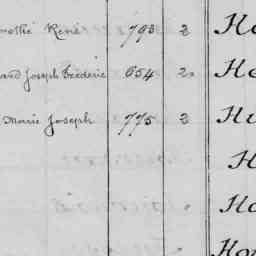 René 793 2 Ho
Joseph Frederic 654 2 He
Marie Joseph 775 2 Hu
H
Ho
Hou